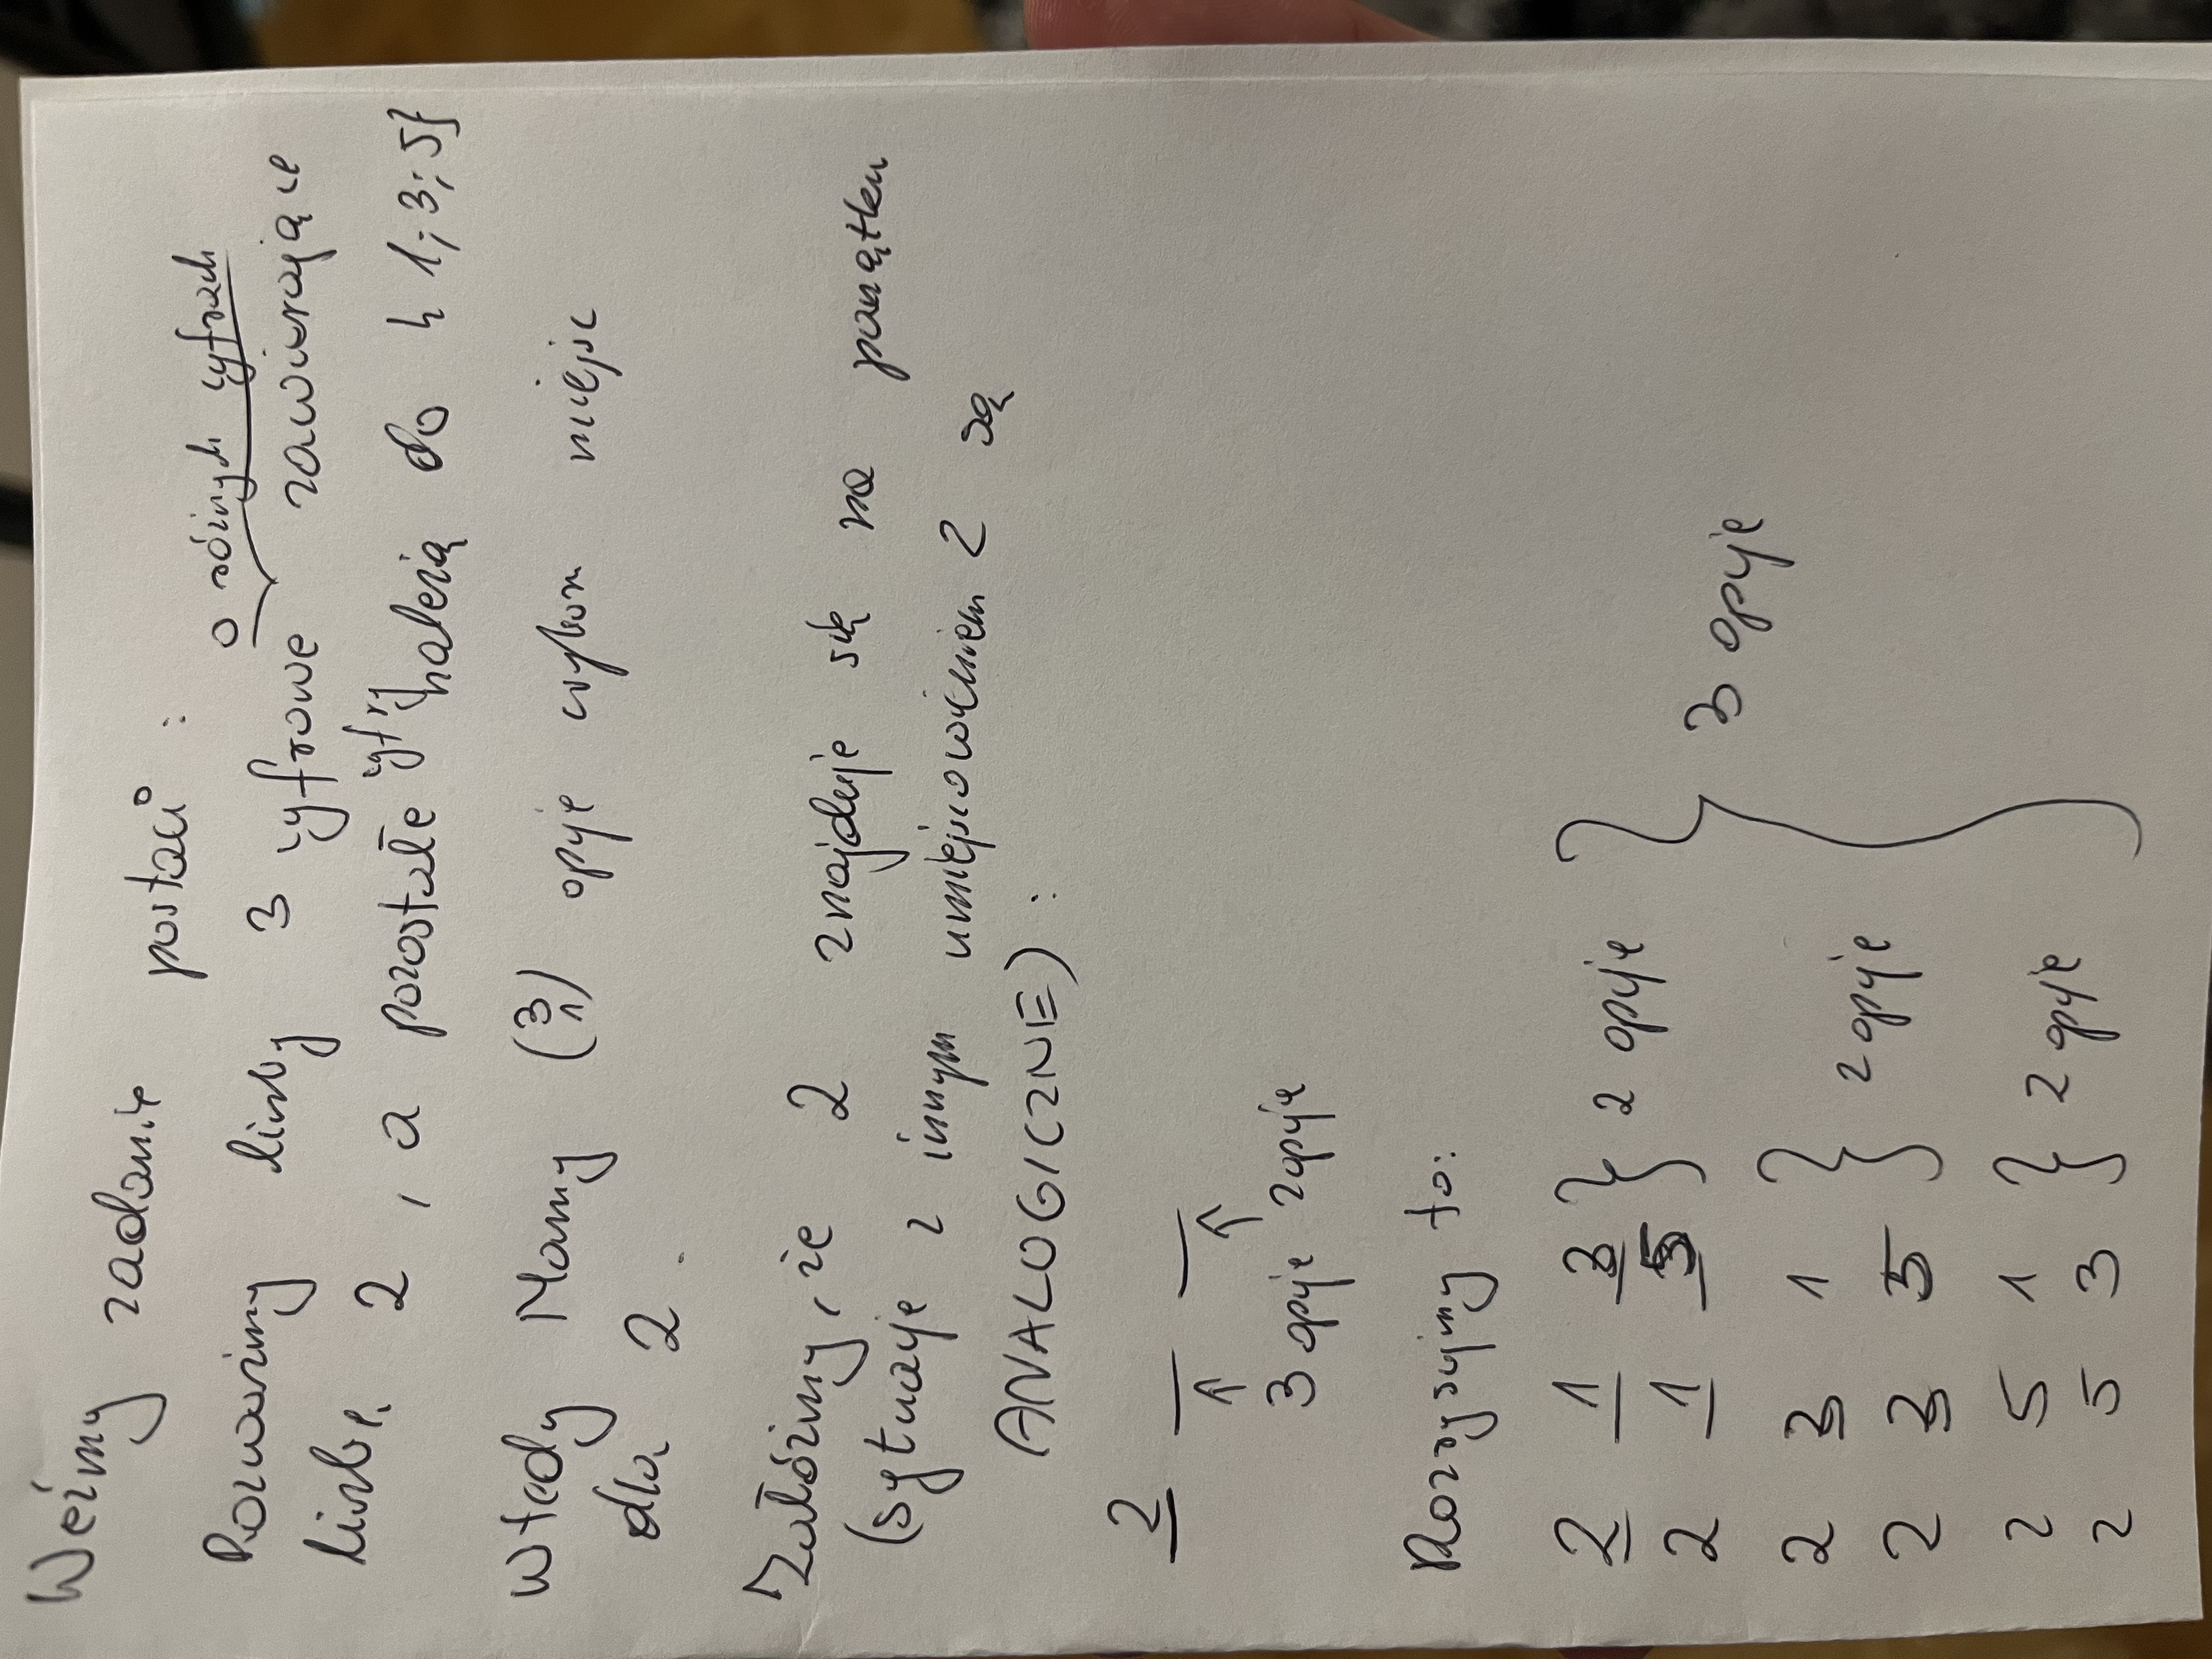 Weźmy zadanie postaci:
o różnych cyfrach
Rozważmy liczby 3 cyfrowe zawierające
liczbę 2, a pozostałe cyfry należą do {1;3;5}
Wtedy Mamy (3 1) opcje wybom miejsc
dla 2.
Załóżmy, że 2 znajduje się na początku
(sytuacje z innym umiejscowieniem 2 są
ANALOGICZNE):
2 _ _
3 opcje 2 opcje
Rozpiszmy to:
2 1 3 } 2 opcje
2 1 5
2 3 1 } 2 opcje
2 3 5
2 5 1 } 2 opcje
2 5 3
} 3 opcje